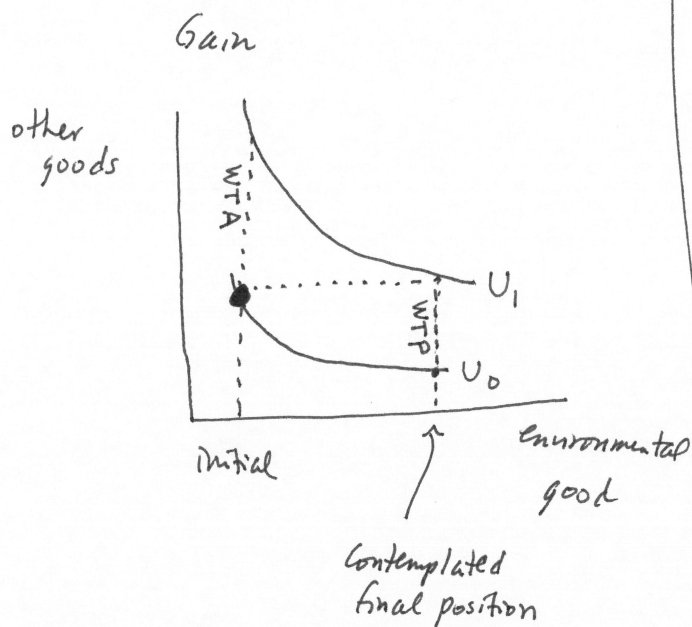 Gain
other
goods
WTA
U₁
WTP
U₀
initial
environmental
good
Contemplated
final position